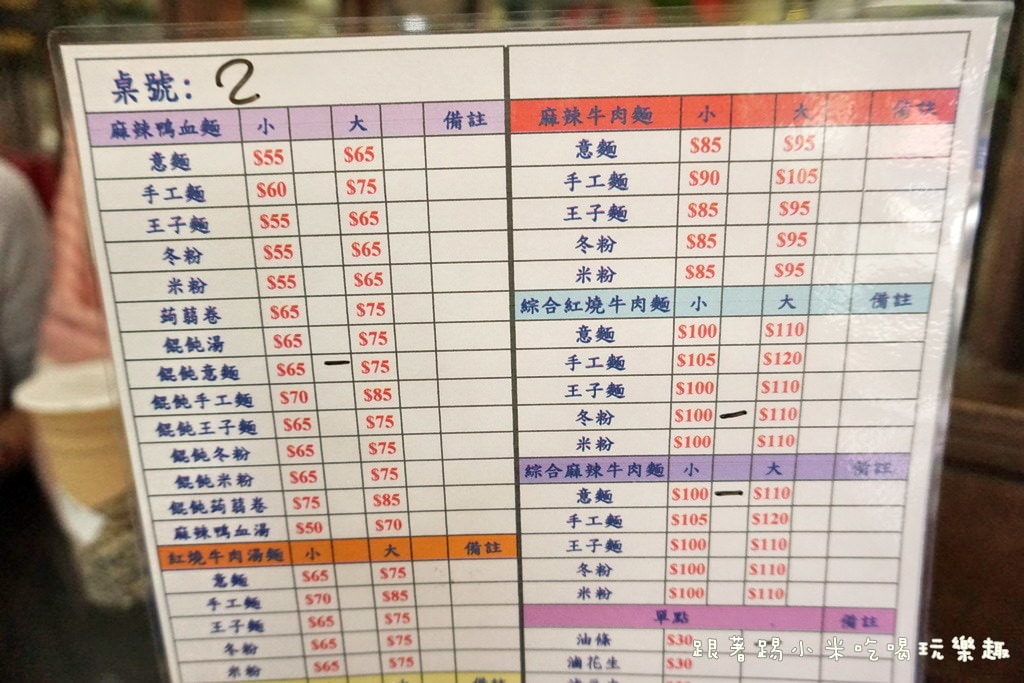 桌號: 2
麻辣鴨血麵 小 大 備註
意麵 $55 $65
手工麵 $60 $75
王子麵 $55 $65
冬粉 $55 $65
米粉 $55 $65
蒟蒻卷 $65 $75
餛飩湯 $65 $75
餛飩意麵 $65 — $75
餛飩手工麵 $70 $85
餛飩王子麵 $65 $75
餛飩冬粉 $65 $75
餛飩米粉 $65 $75
餛飩蒟蒻卷 $75 $85
麻辣鴨血湯 $50 $70
紅燒牛肉湯麵 小 大 備註
意麵 $65 $75
手工麵 $70 $85
王子麵 $65 $75
冬粉 $65 $75
米粉 $65 $75
大 備註
麻辣牛肉麵 小 大 備註
意麵 $85 $95
手工麵 $90 $105
王子麵 $85 $95
冬粉 $85 $95
米粉 $85 $95
綜合紅燒牛肉麵 小 大 備註
意麵 $100 $110
手工麵 $105 $120
王子麵 $100 $110
冬粉 $100 — $110
米粉 $100 $110
綜合麻辣牛肉麵 小 大 備註
意麵 $100 — $110
手工麵 $105 $120
王子麵 $100 $110
冬粉 $100 $110
米粉 $100 $110
單點 備註
油條 $30
滷花生 $30
跟著踢小米吃喝玩樂趣